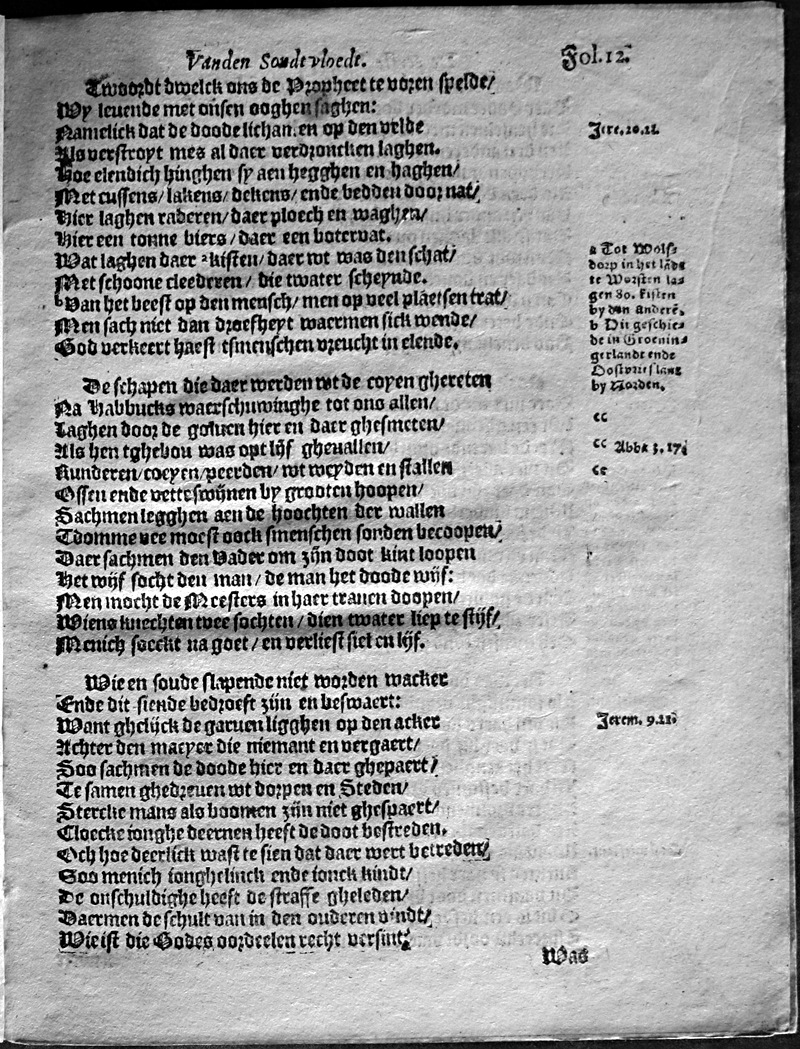 Vanden Sondtvloedt.
Fol. 12.
Twoordt dwelck ons de Propheet te voren spelde/
Wy leuende met onsen ooghen saghen:
Namelick dat de doode lichamen op den velde
Als verstroyt mes al daer verdroncken laghen.
Hoe elendich hinghen sy aen hegghen en haghen/
Met cussens/ lakens/ dekens/ ende bedden door nat/
Hier laghen raderen/ daer ploech en waghen/
Hier een tonne biers/ daer een botervat.
Wat laghen daer a kisten/ daer wt was den schat/
Met schoone cleederen/ die twater scheynde.
b Van het beest op den mensch/ men op veel plaetsen trat/
Men sach niet dan droefheyt waermen sick wende/
God verkeert haest tsmenschen vreucht in elende.
De schapen die daer werden wt de coyen ghereten
Na Habbucks waerschuwinghe tot ons allen/
Laghen door de goluen hier en daer ghesmeten/
Als hen tghebou was opt lijf gheuallen/
Runderen/ coeyen/ peerden/ wt weyden en stallen
Ossen ende vette swijnen by grooten hoopen/
Sachmen legghen aen de hoochten der wallen
Tdomme vee moest oock smenschen sonden becoopen/
Daer sachmen den Vader om zijn doot kint loopen
Het wijf socht den man/ de man het doode wijf:
Men mocht de Meesters in haer tranen doopen/
Wiens knechten twee sochten/ dien twater liep te stijf/
Menich soeckt na goet/ en verliest siel en lijf.
Wie en soude slapende niet worden wacker
Ende dit siende bedroeft zijn en beswaert:
Want ghelijck de garuen ligghen op den acker
Achter den maeyer die niemant en vergaert/
Soo sachmen de doode hier en daer ghepaert/
Te samen ghedreuen wt dorpen en Steden/
Stercke mans als boomen zijn niet ghespaert/
Cloecke ionghe deernen heeft de doot bestreden.
Och hoe deerlick wast te sien dat daer wert betreden/
Soo menich ionghelinck ende ionck kindt/
De onschuldighe heeft de straffe gheleden/
Daermen de schult van in den ouderen vindt/
Wie ist die Godes oordeelen recht versint/
Was
Jere.
a Tot Wolfs
dorp in het lāde
te Wursten la-
gen 80. kisten
by den anderē.
b Dit geschie-
de in Groenin-
gerlandt ende
Oostvrieslant
by Norden.
cc
cc Abba 3. 17.
cc
Jerem. 9.22.